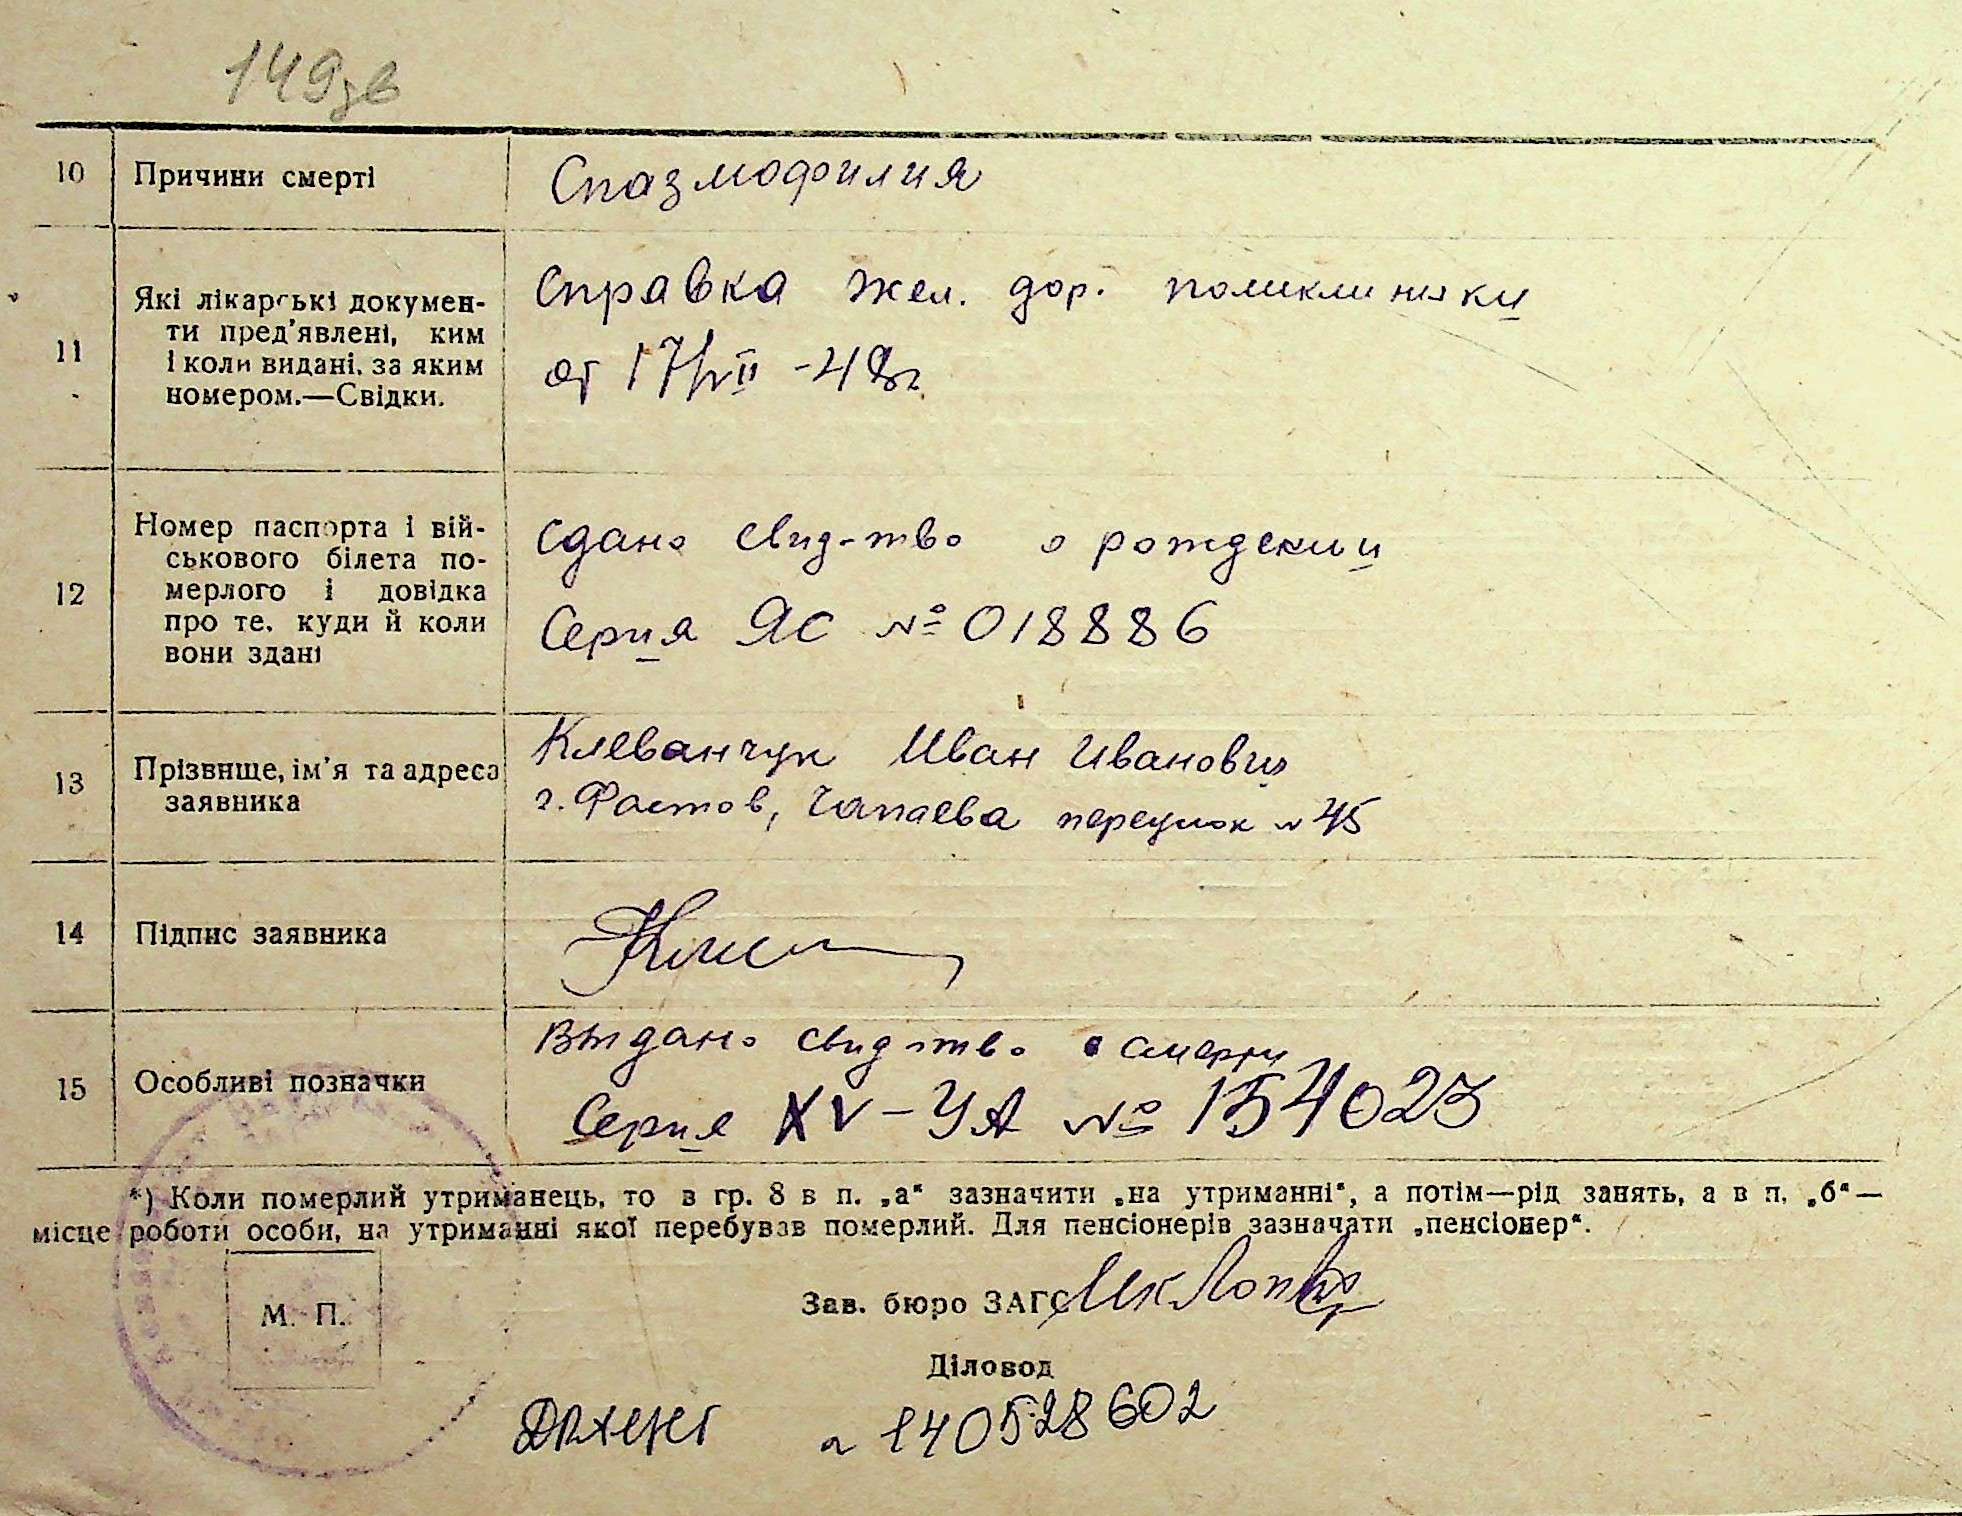 149зв
10 Причини смерті Спазмофилия
11 Які лікарські докумен-
ти пред'явлені, ким
і коли видані, за яким
номером.—Свідки.
Справка жел. дор. поликлиники
от 17/VII -48г
12 Номер паспорта і вій-
ськового білета по-
мерлого і довідка
про те, куди й коли
вони здані
Сдано свид-тво о рождении
Серия ЯС № 018886
13 Прізвище, ім'я та адреса
заявника
Клеванчук Иван Иванович
г. Фастов, Чапаева переулок № 45
14 Підпис заявника
15 Особливі позначки
Выдано свид-тво о смерти
Серия XV-УА № 154023
*) Коли померлий утриманець, то в гр. 8 в п. „а“ зазначити „на утриманні“, а потім—рід занять, а в п. „б“—
місце роботи особи, на утриманні якої перебував померлий. Для пенсіонерів зазначати „пенсіонер“.
М. П.
Зав. бюро ЗАГС
Діловод
140528602